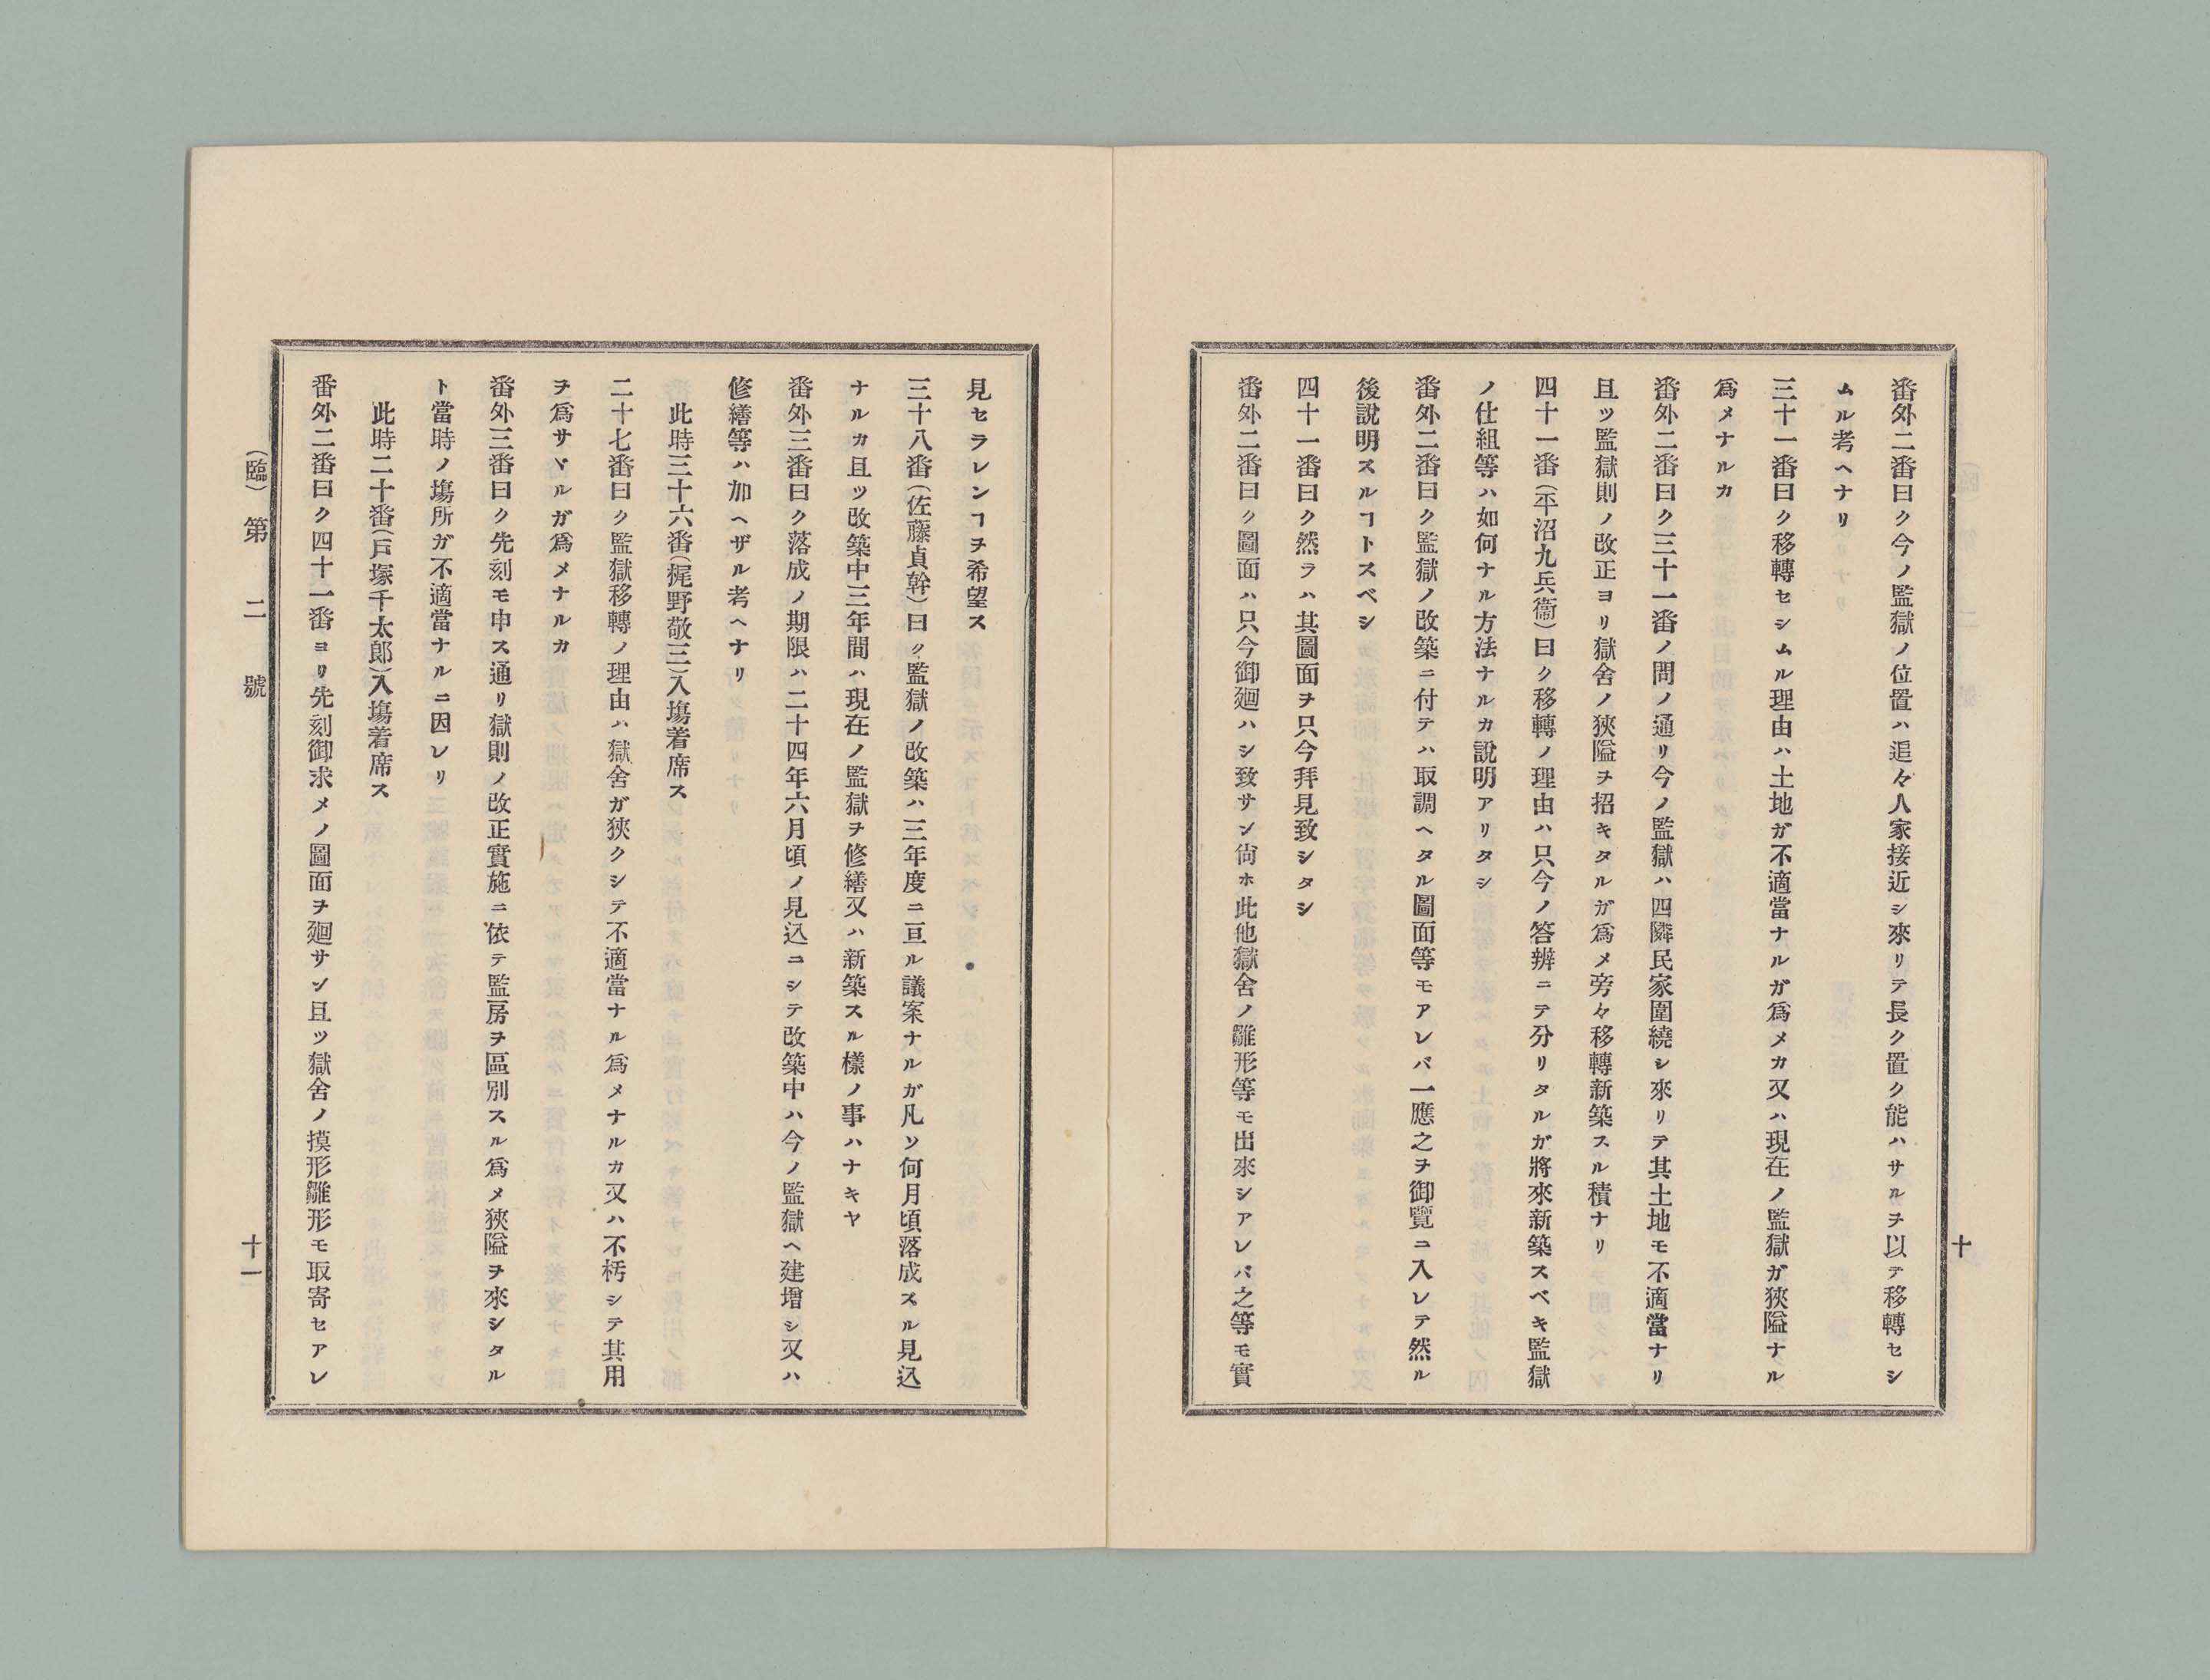 番外二番曰ク今ノ監獄ノ位置ハ追々人家接近シ來リテ長ク置ク能ハサルヲ以テ移轉セシ
ムル考ヘナリ
三十一番曰ク移轉セシムル理由ハ土地ガ不適當ナルガ爲メカ又ハ現在ノ監獄ガ狹隘ナル
爲メナルカ
番外二番曰ク三十一番ノ問ノ通リ今ノ監獄ハ四隣民家圍繞シ來リテ其土地モ不適當ナリ
且ツ監獄則ノ改正ヨリ獄舍ノ狹隘ヲ招キタルガ爲メ旁々移轉新築スル積ナリ
四十一番(平沼九兵衞)曰ク移轉ノ理由ハ只今ノ答辨ニテ分リタルガ將來新築スベキ監獄
ノ仕組等ハ如何ナル方法ナルカ説明アリタシ
番外二番曰ク監獄ノ改築ニ付テハ取調ヘタル圖面等モアレバ一應之ヲ御覽ニ入レテ然ル
後説明スルヿトスベシ
四十一番曰ク然ラハ其圖面ヲ只今拜見致シタシ
番外二番曰ク圖面ハ只今御廻ハシ致サン尙ホ此他獄舍ノ雛形等モ出來シアレバ之等モ實
十
見セラレンヿヲ希望ス
三十八番(佐藤貞幹)曰ク監獄ノ改築ハ三年度ニ亘ル議案ナルガ凡ソ何月頃落成スル見込
ナルカ且ツ改築中三年間ハ現在ノ監獄ヲ修繕又ハ新築スル樣ノ事ハナキヤ
番外三番曰ク落成ノ期限ハ二十四年六月頃ノ見込ニシテ改築中ハ今ノ監獄ヘ建增シ又ハ
修繕等ハ加ヘザル考ヘナリ
此時三十六番(梶野敬三)入塲着席ス
二十七番曰ク監獄移轉ノ理由ハ獄舍ガ狹クシテ不適當ナル爲メナルカ又ハ不朽シテ其用
ヲ爲サヾルガ爲メナルカ
番外三番曰ク先刻モ申ス通リ獄則ノ改正實施ニ依テ監房ヲ區別スル爲メ狹隘ヲ來シタル
ト當時ノ塲所ガ不適當ナルニ因レリ
此時二十番(戸塚千太郎)入塲着席ス
番外二番曰ク四十一番ヨリ先刻御求メノ圖面ヲ廻サン且ツ獄舍ノ摸形雛形モ取寄セアレ
(臨)第二號
十一